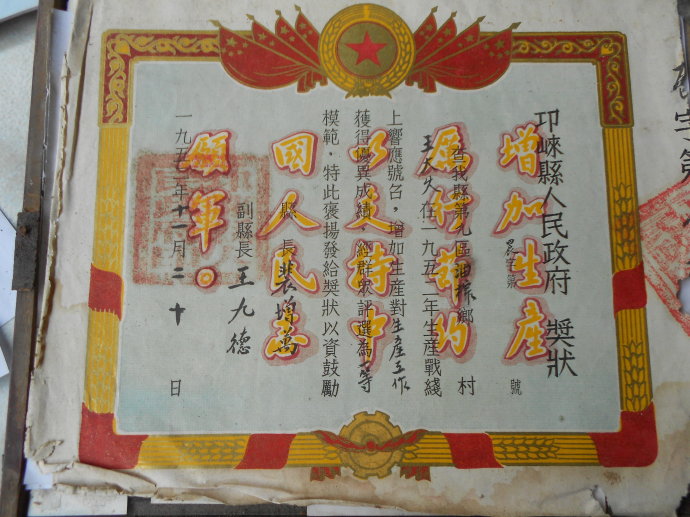 邛崍縣人民政府 獎狀
農字第 號
增加生產
查我縣第九區油榨鄉 村
厲行節約
在一九五二年生產戰綫
上響應號召，增加生產對生產工作
以支持中
獲得優異成績，經群眾評選為一等
模範．特此褒揚發給獎狀以資鼓勵
國人民志
縣長 裴增萬
副縣長 王九德
願軍。
一九五二年十一月二十日
字第